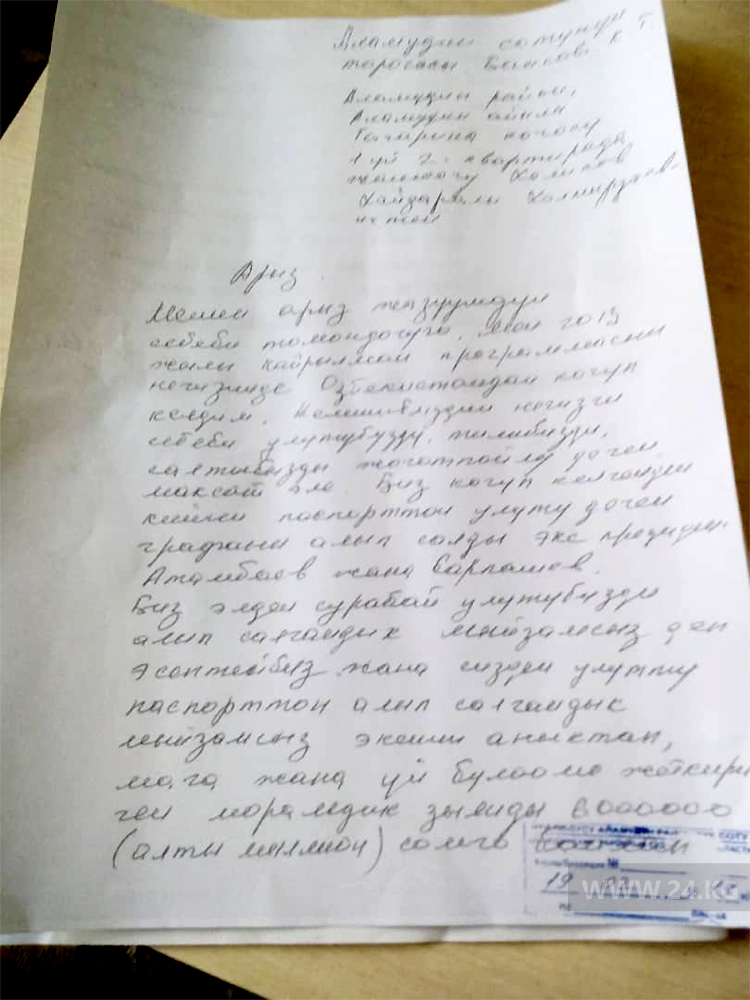 Аламудин сотунун
торагасы К Т.
Аламудин район,
Аламудин айыли
Гагарина көчөсү
1 үй 2 - квартирада
жашоочу Халиков
Хайдарали
Арыз.
Менин арыз жазуумдун
себеби томондогүгү. Мен 2015
жылы Кайрылман программасынын
негизинде Озбекистондан кочуп
келдим. Келишибиздин негизги
себеби улутубузду, тилибизди,
салтыбызды жоготпойлу деген
максат эле. Биз кочуп келгенден
кийин паспорттон улуту деген
графаны алып салды экс президент
Атамбаев жана Сарпашев.
Биз элден сурабай улутубузду
алып салгандык мыйзамсыз деп
эсептейбиз жана сизден улутту
паспорттон алып салгандык
мыйзамсыз экенин аныктап,
мага жана үй бүлөөмө жеткирил
ген моралдык зыянды 6000000
(алты миллион) сомго
СОТУ
№
19
www.24.kg